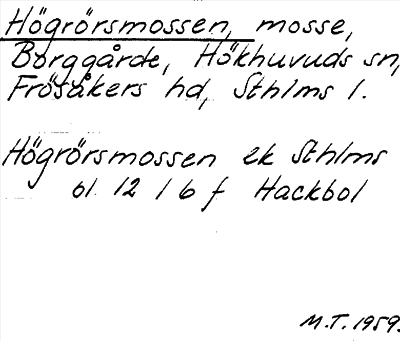 Högrörsmossen, mosse,
Borggårde, Hökhuvuds sn,
Frösåkers hd, Sthlms l.
Högrörsmossen ek Sthlms
bl 12 1 6 f Hackbol
M.T. 1959.